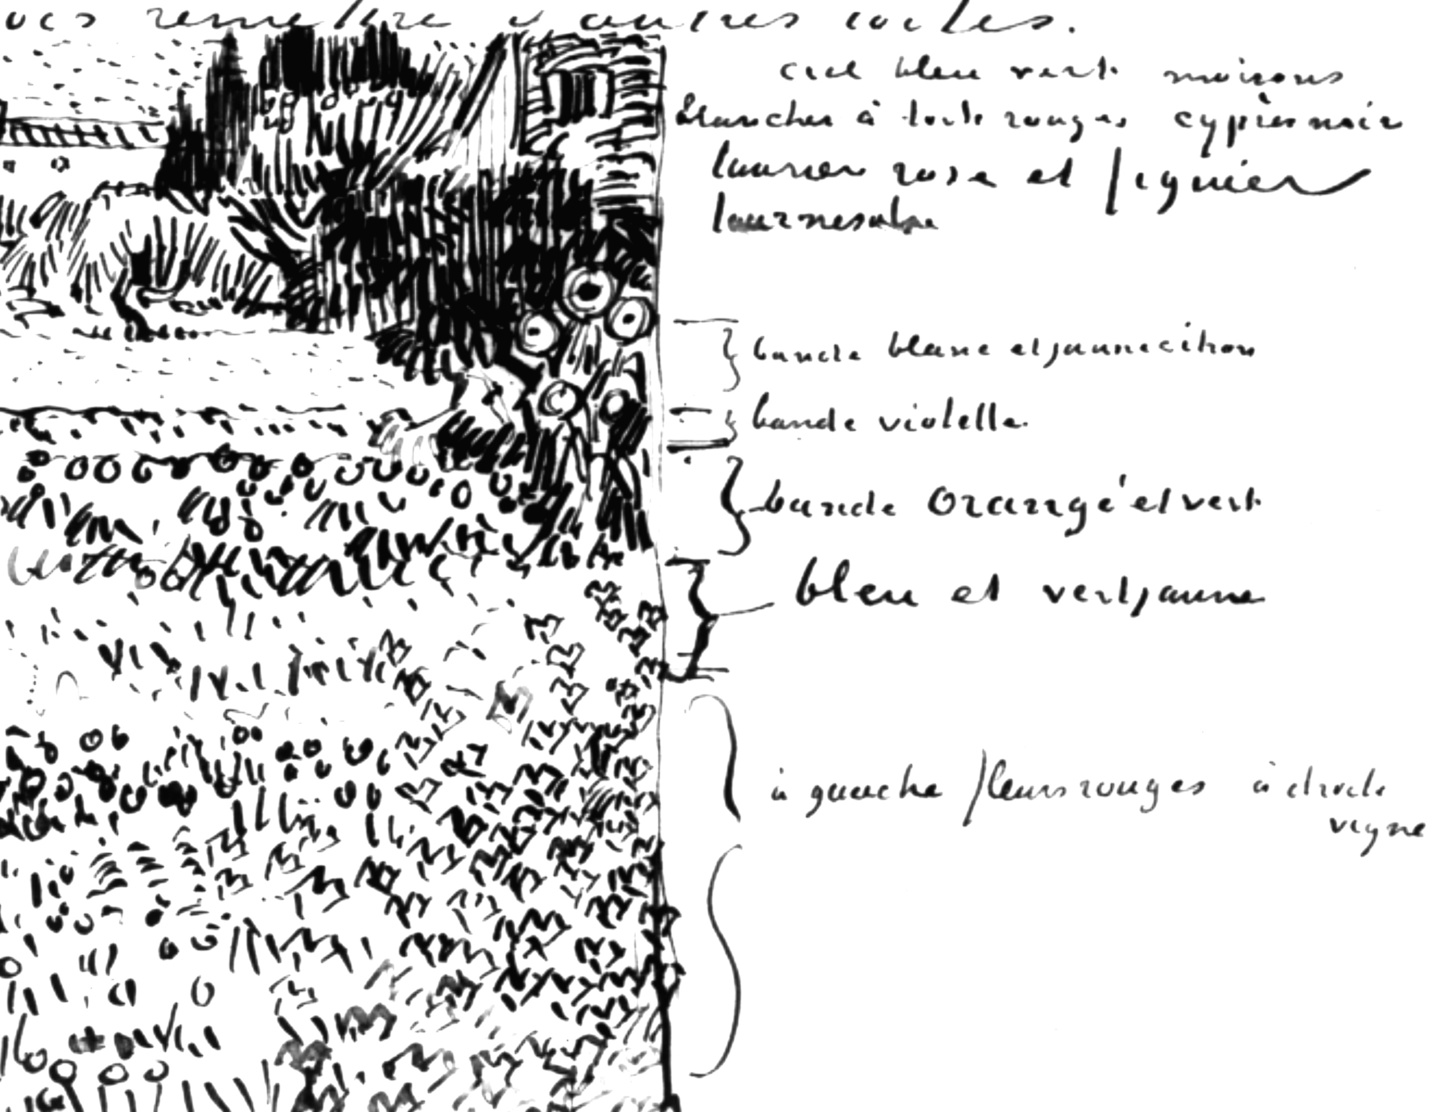 vous remettre d'autres toiles.
ciel bleu vert maisons
blanches à toits rouges cyprès noir
laurier rose et figuier
tournesols
bande blanc et jaune citron
bande violette.
bande orangé et vert
bleu et vert jaune
à gauche fleurs rouges à droite
vigne